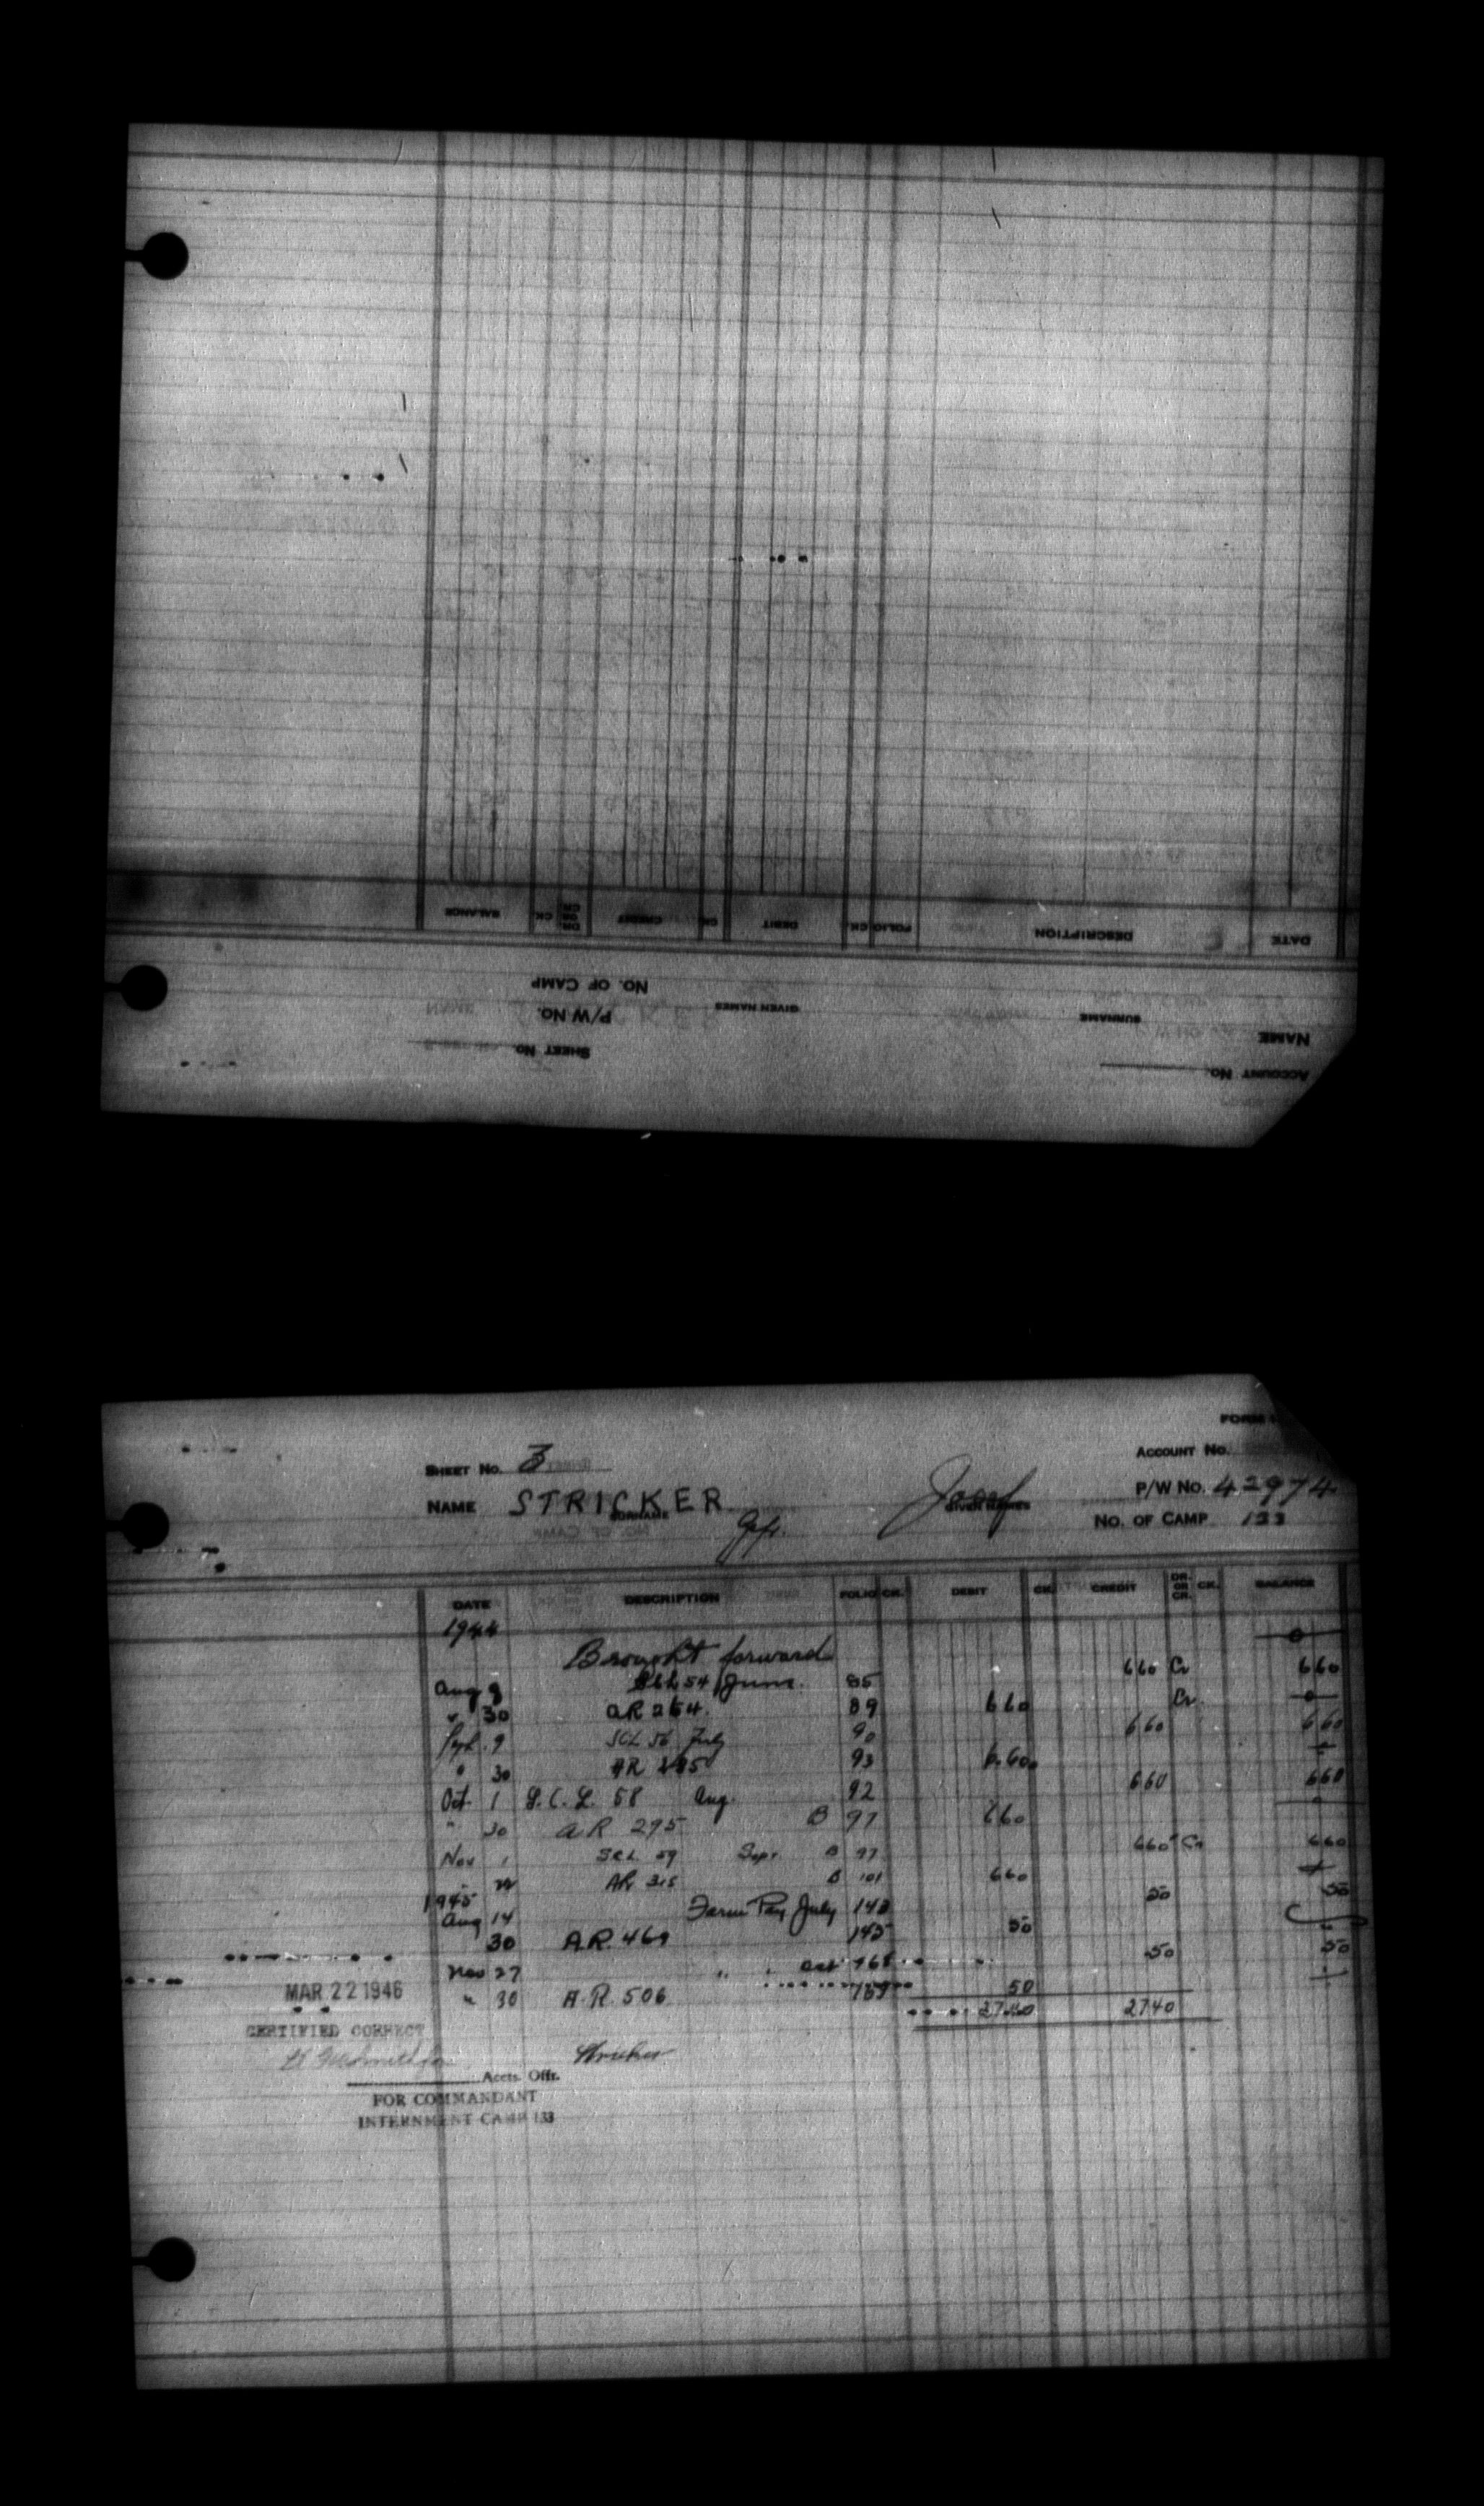 ACCOUNT No.
NAME SURNAME GIVEN NAMES
SHEET No.
P/W No.
No. OF CAMP
DATE DESCRIPTION FOLIO CK. DEBIT CK. CREDIT DR. OR CR. CK. BALANCE
FORM
SHEET No. 3 ACCOUNT No.
NAME STRICKER Josef P/W No. 42974
SURNAME GIVEN NAMES
Gefr. No. OF CAMP 133
DATE DESCRIPTION FOLIO CK. DEBIT CK. CREDIT DR. OR CR. CK. BALANCE
1944
Brought forward 0
Aug 9 SCL 54 June 85 660 Cr 660
" 30 AR 264 89 660 Cr. 0
Sept. 9 SCL 56 July 90 660 660
" 30 AR 93 6.60
Oct. 1 S.C.L. 58 Aug. 92 660 660
" 30 AR 295 B 97 660
Nov 1 SCL 59 Sept B 97 660 Cr 660
AR 315 B 101 660
1945
Aug 14 Farm Pay July 143 50 50
30 A.R. 469 145 50
Nov 27 " " Oct 168 50 50
" 30 A.R. 506 50
27.40 2740
MAR 22 1946
CERTIFIED CORRECT
Stricker
Accts. Offr.
FOR COMMANDANT
INTERNMENT CAMP 133